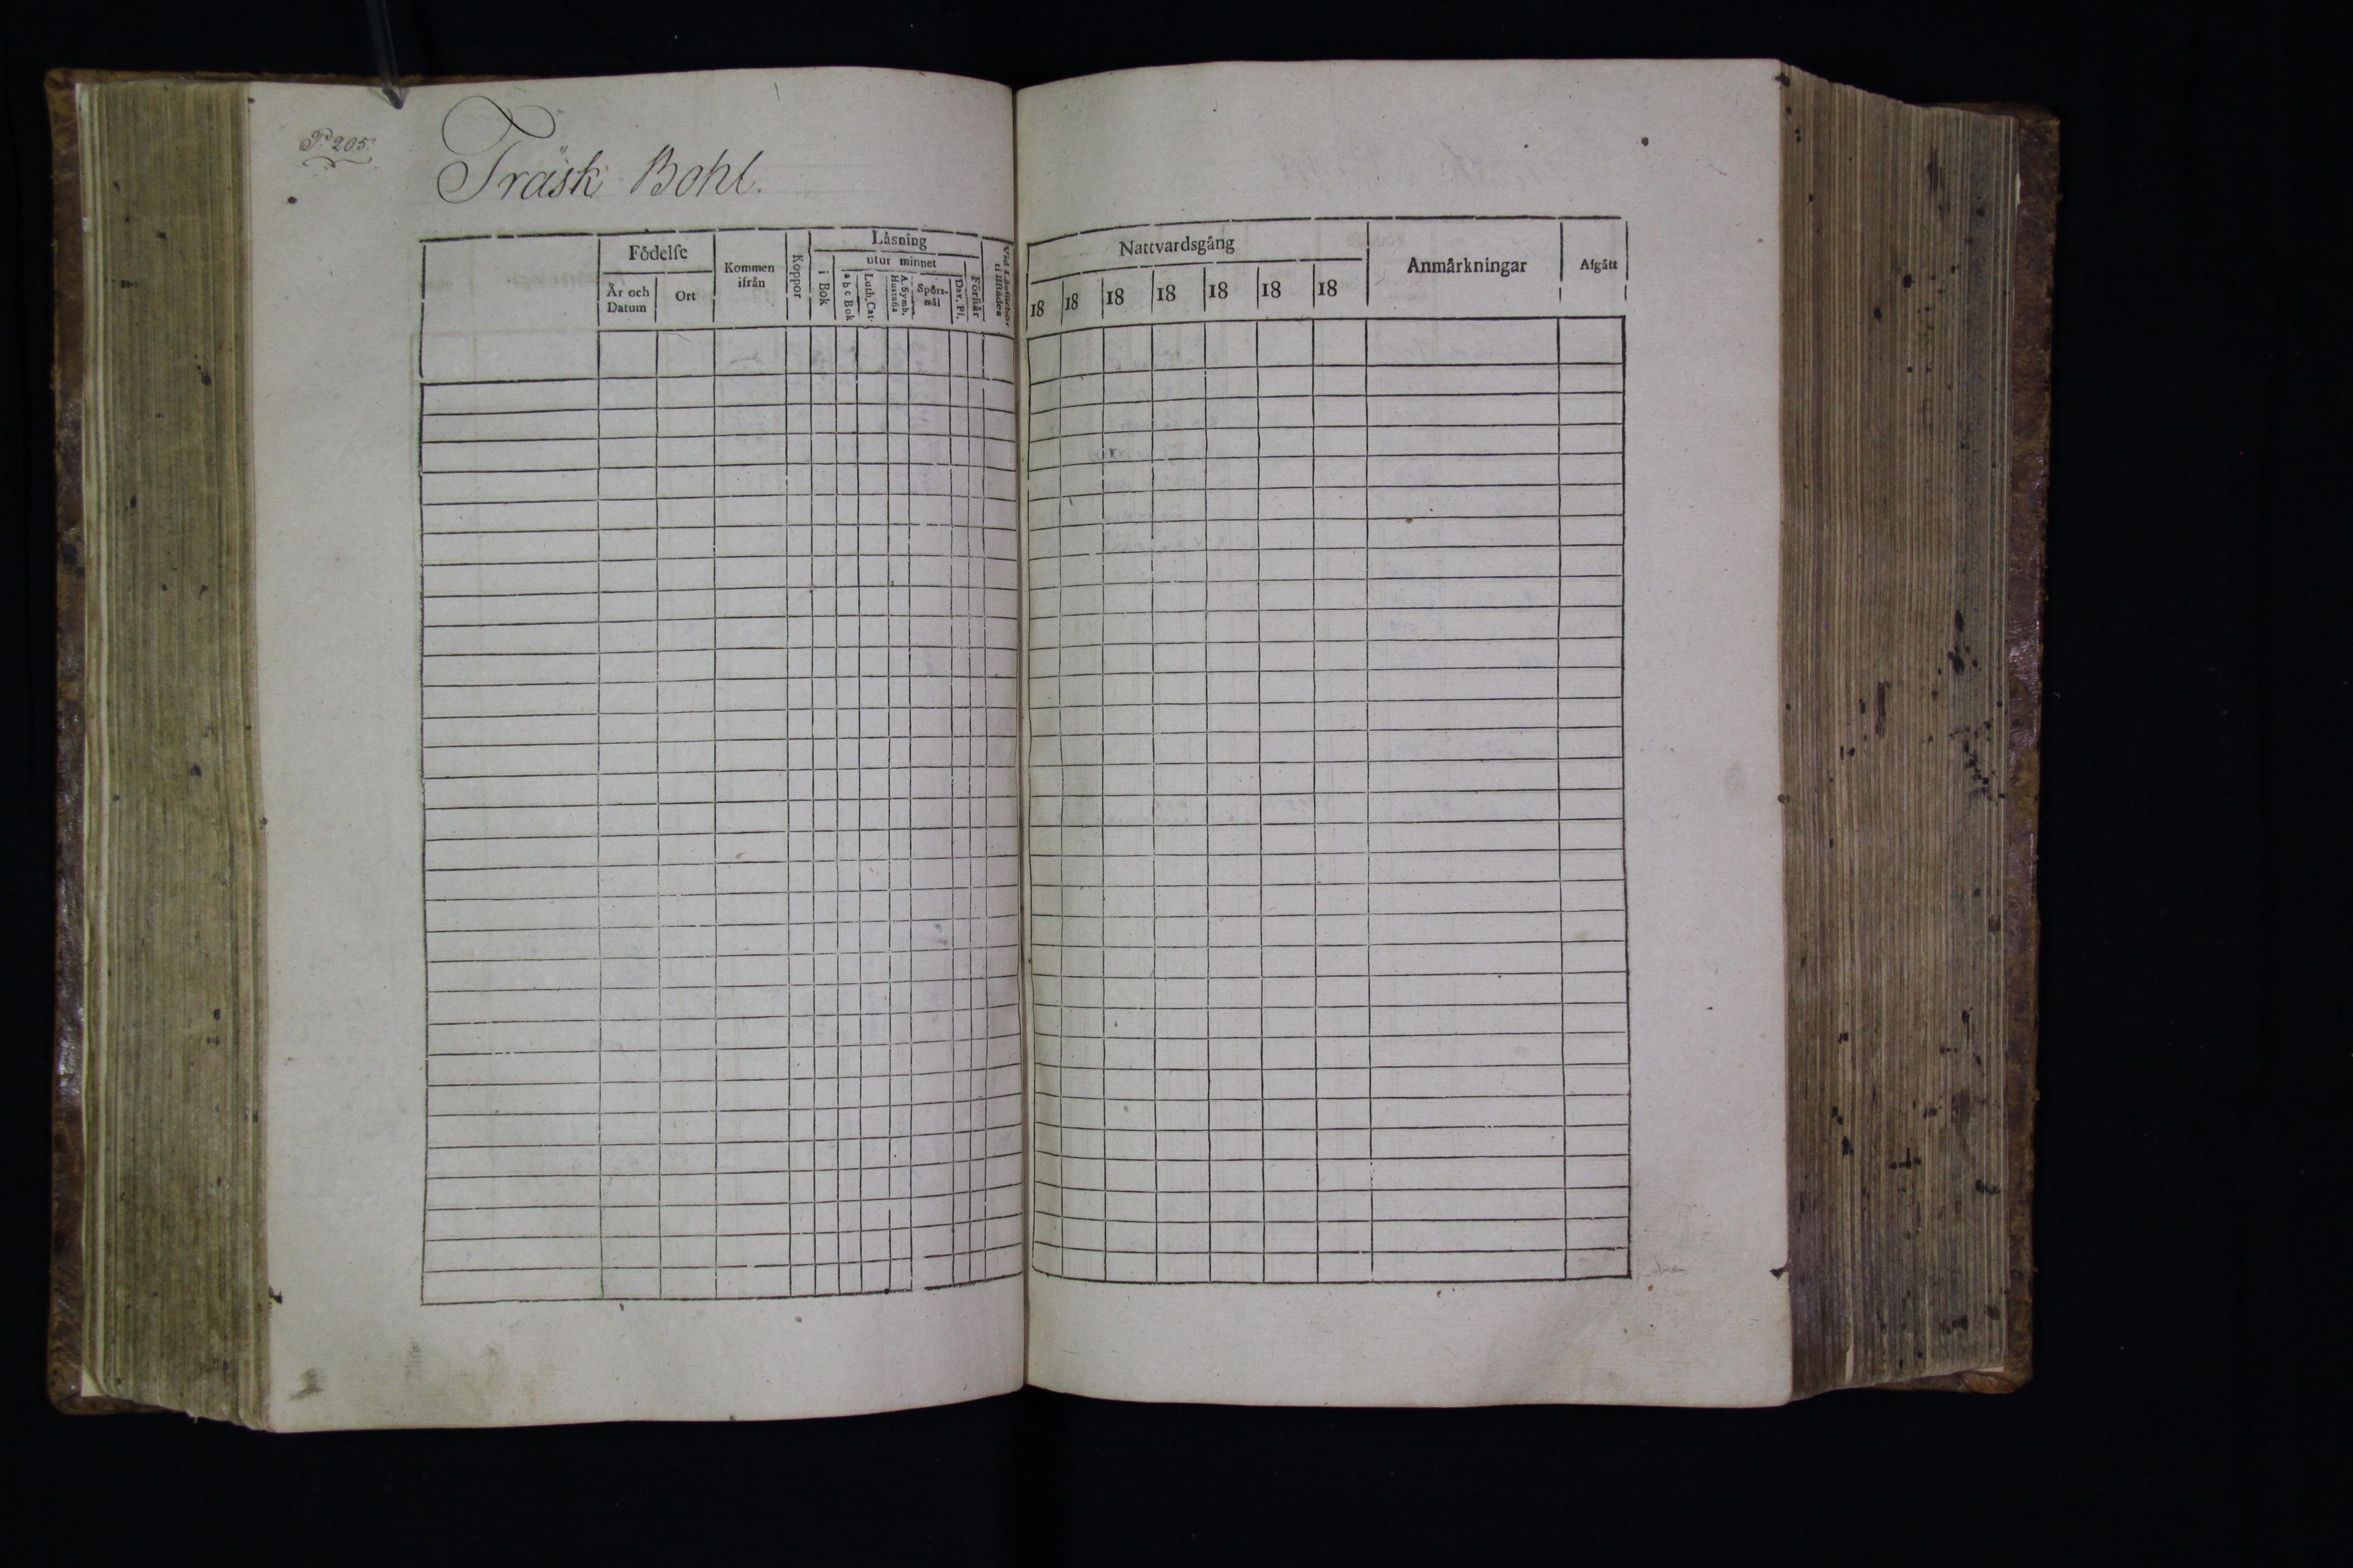 P. 205.
Träsk Bohl.
Födelse
År och Datum
Ort
Kommen ifrån
Koppor
Läsning
i Bok
utur minnet
a b c Bok
Luth. Cat.
A. Symb. Hustafla
Spörsmål
Dav. Ps.
Förstår
Nattvardsgång
18 18 18 18 18 18 18
Anmärkningar
Afgått